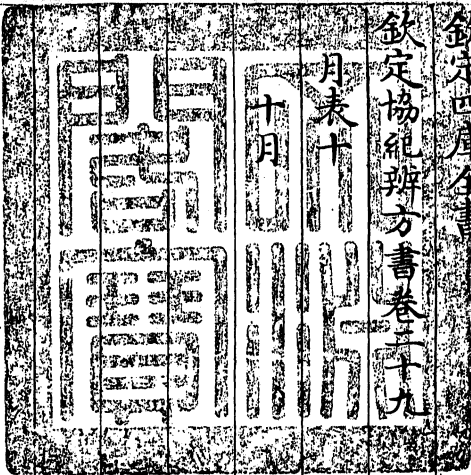 欽定四庫全書
欽定協紀辨方書卷三十九
月表十
十月